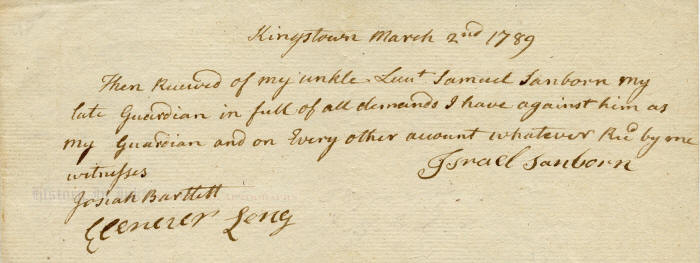 Kingstown March 2nd 1789
Then Recieved of my unkle Lieut Samuel Sanborn my
late Guardian in full of all demands I have against him as
my Guardian and on Every other account whatever Recd by me
witnesses
Israel Sanborn
Josiah Bartlett
Ebenezer Long